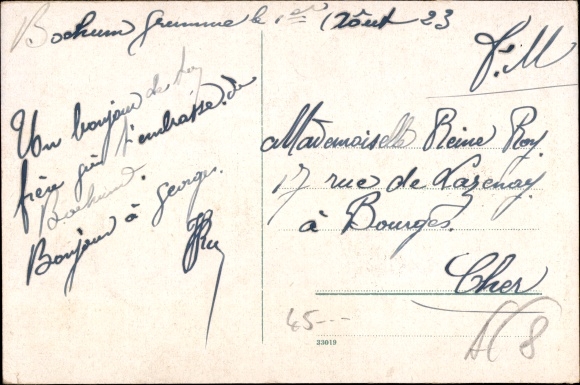 Bochum Grumme le 1er Août 23
F.M
Un bonjour de ton
frère qui t'embrasse. de
Bochum.
Bonjour à Georges.
Mademoiselle Reine Roy.
17 rue de Lazenay.
à Bourges.
Cher
45---
33019